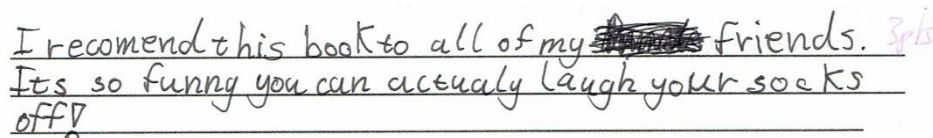 I recomend this book to all of my friends. 3pts
Its so funny you can actualy laugh your socks
off!